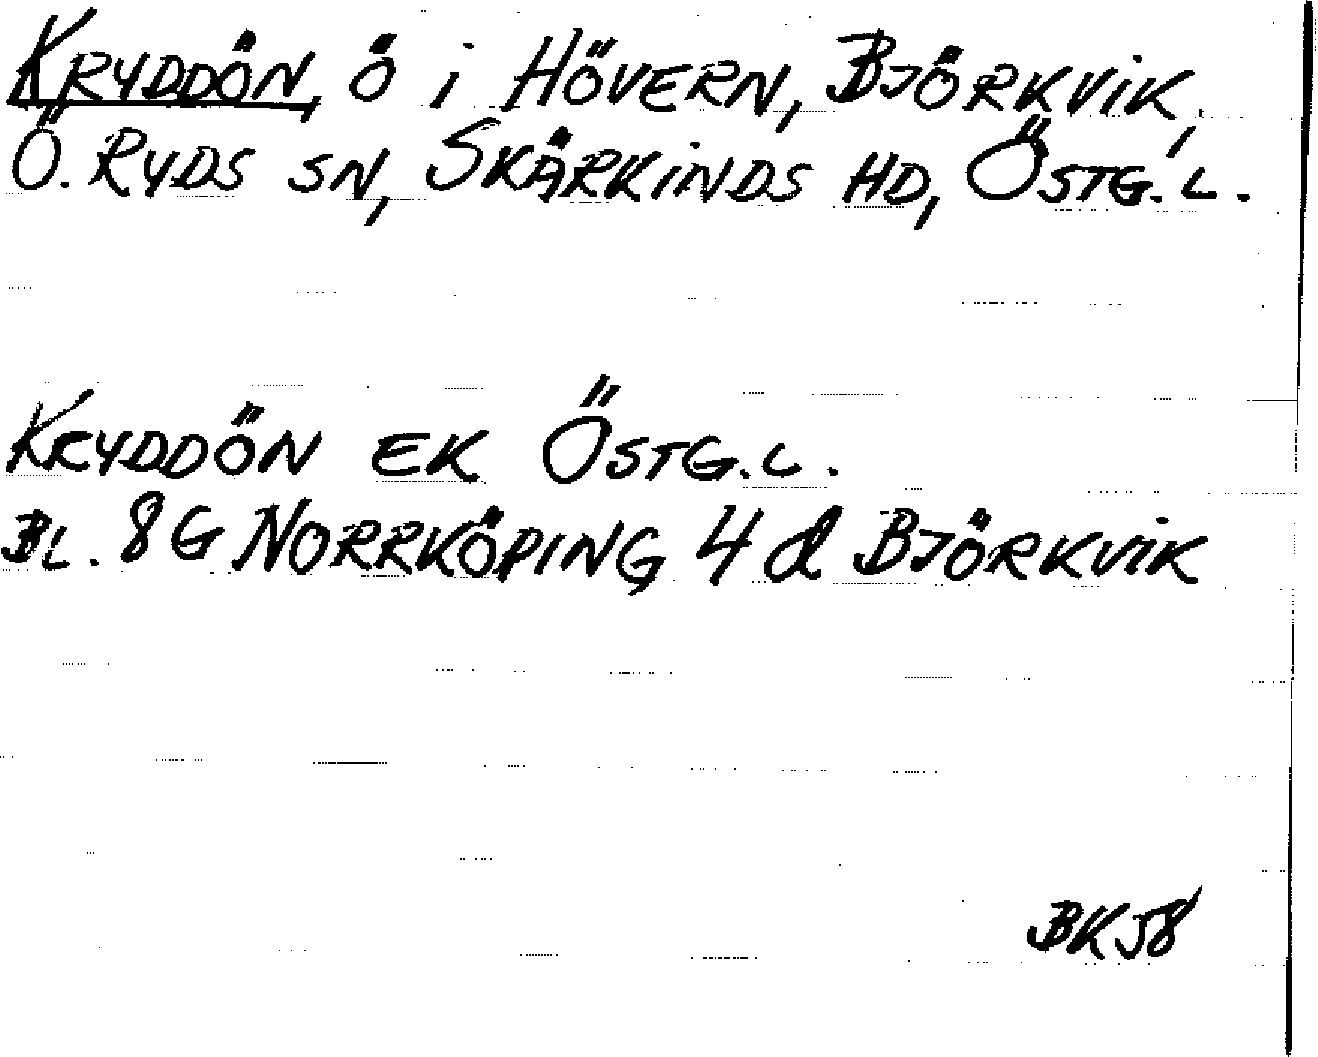 KRYDDÖN, Ö i HÖVERN, BJÖRKVIK,
Ö. RYDS SN, SKÄRKINDS HD, ÖSTG. L.
KRYDDÖN EK ÖSTG. L.
BL. 8G NORRKÖPING 4 d BJÖRKVIK
BK58